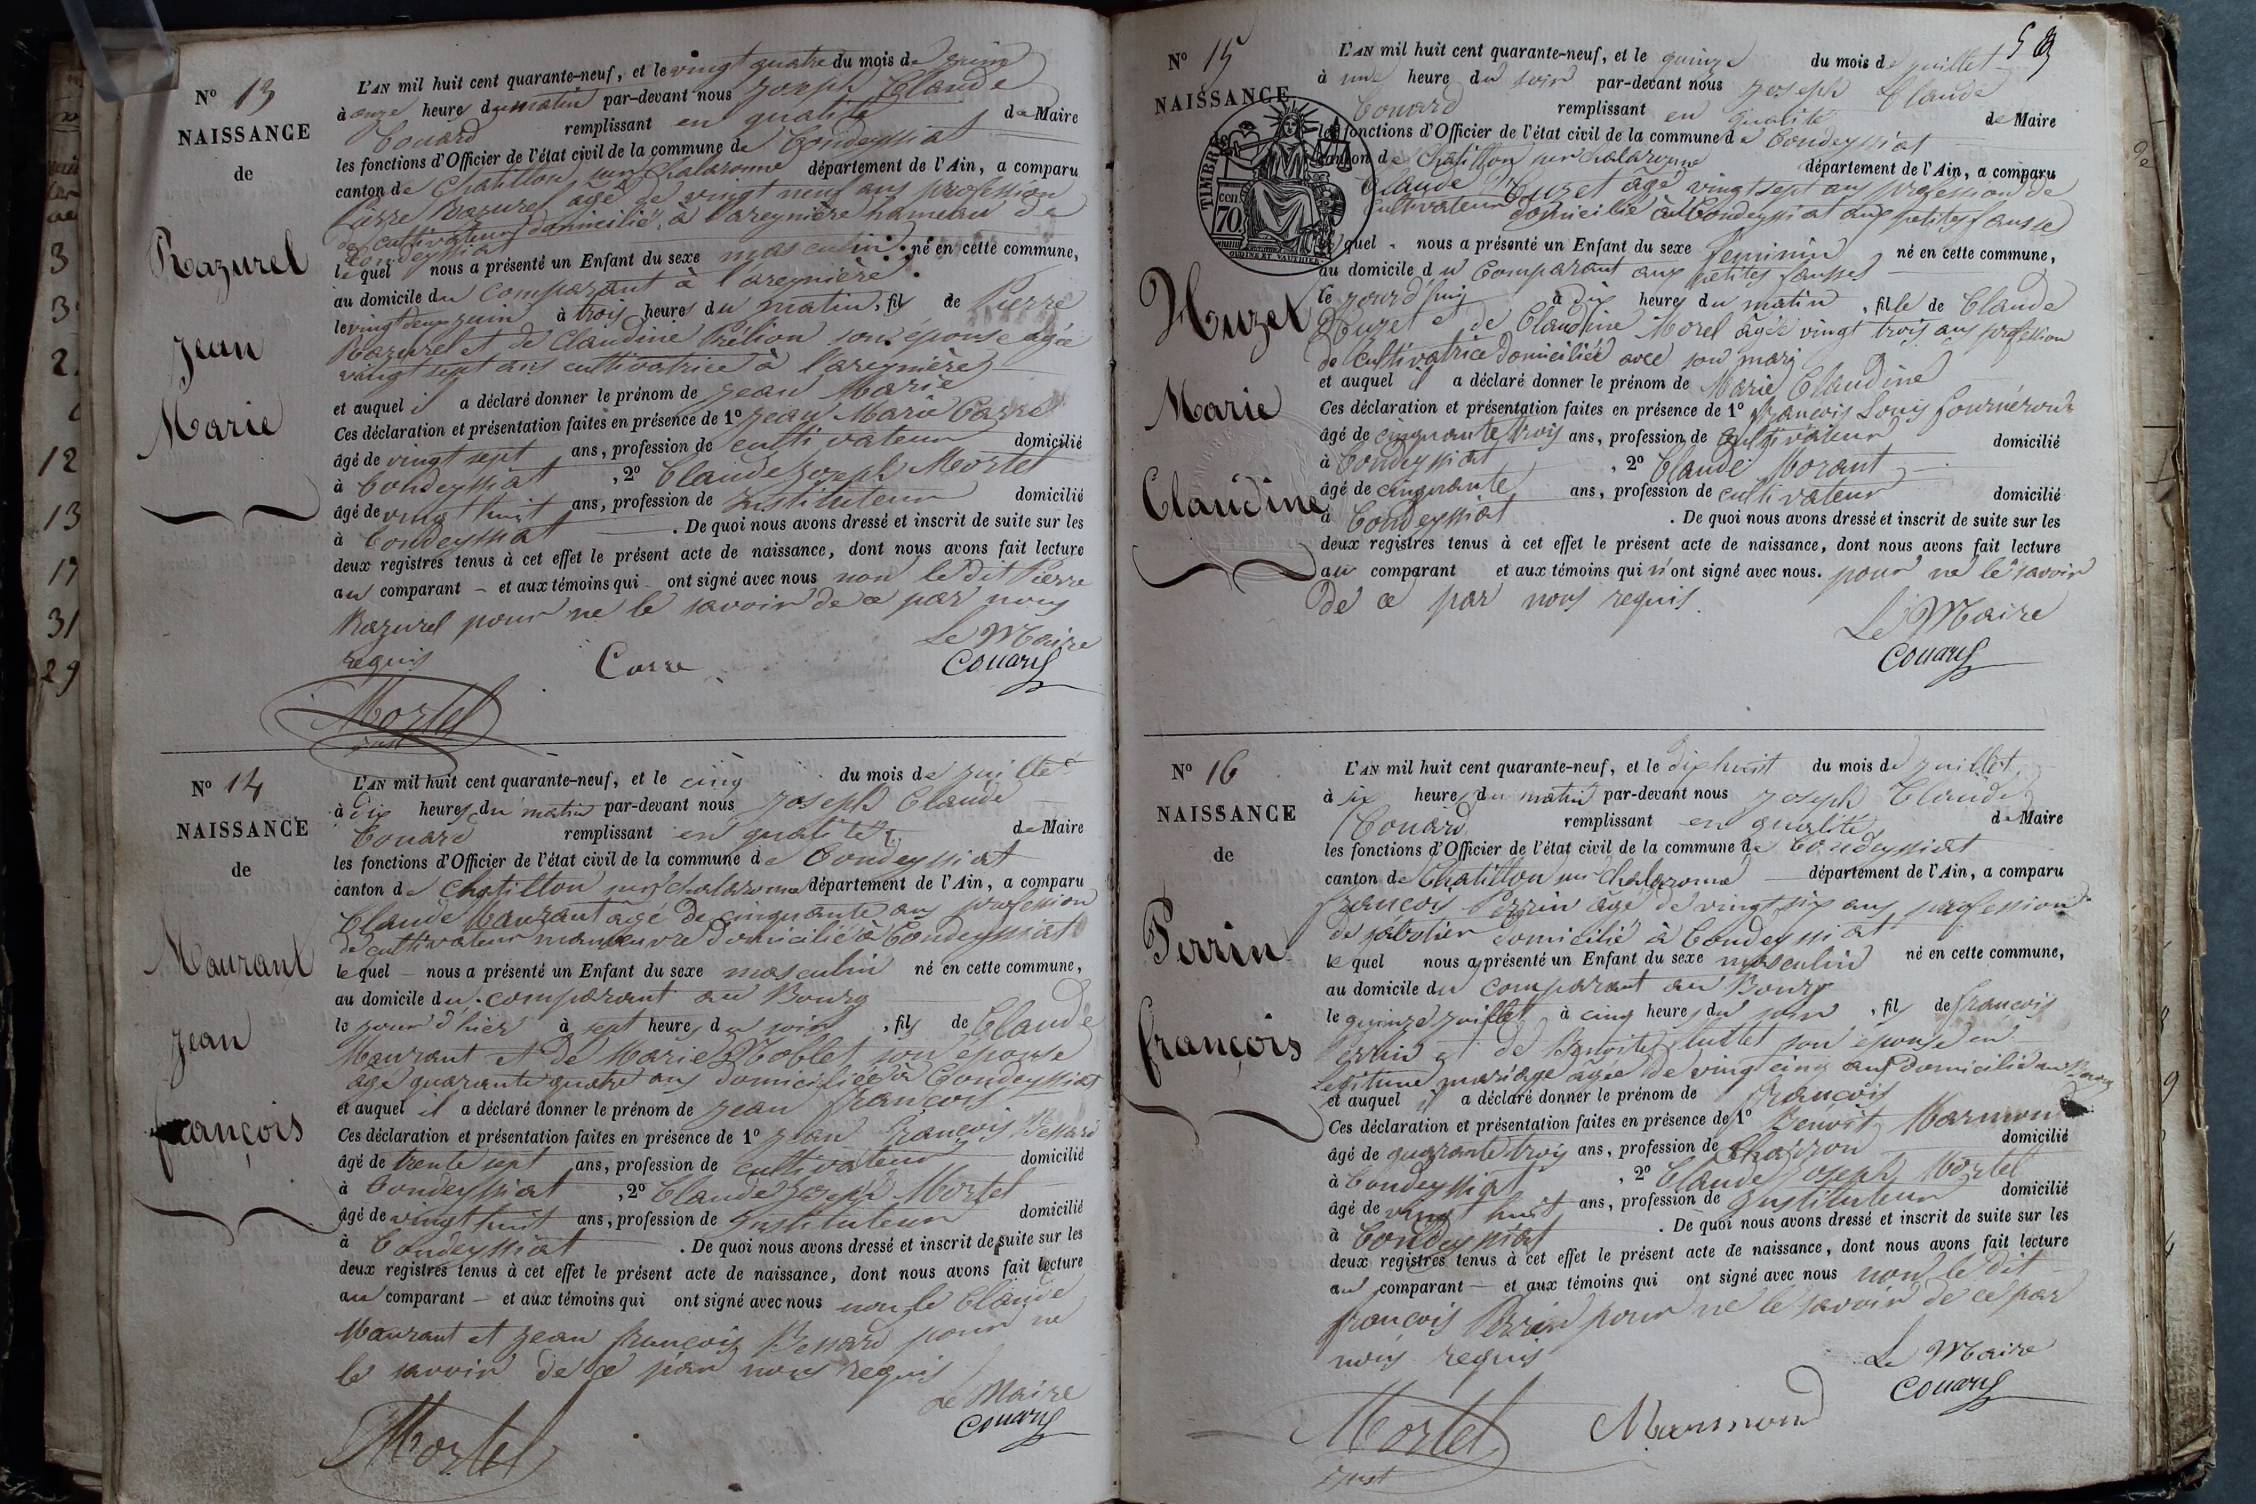 N° 13
NAISSANCE
de
Razurel
Jean
Marie
L'AN mil huit cent quarante-neuf, et le vingt quatre du mois de juin
à onze heures du matin par-devant nous Joseph Claude
Couard remplissant en qualité de Maire
les fonctions d'Officier de l'état civil de la commune de Condeyssiat
canton de Chatillon sur Chalaronne département de l'Ain, a comparu
Pierre Razurel agé de vingt neuf ans profession
de cultivateur domicilié à Lareynière hameau de
Condeyssiat
lequel nous a présenté un Enfant du sexe masculin né en cette commune,
au domicile du comparant à lareynière
le vingt deux juin à trois heures du matin, fils de Pierre
Razurel et de Claudine Prélion son épouse agée
vingt sept ans cultivatrice à lareynière
et auquel il a déclaré donner le prénom de Jean Marie
Ces déclaration et présentation faites en présence de 1° Jean Marie Carre
âgé de vingt sept ans, profession de cultivateur domicilié
à Condeyssiat, 2° Claude Joseph Mortel
âgé de vingt huit ans, profession de Instituteur domicilié
à Condeyssiat. De quoi nous avons dressé et inscrit de suite sur les
deux registres tenus à cet effet le présent acte de naissance, dont nous avons fait lecture
au comparant et aux témoins qui ont signé avec nous non le dit Pierre
Razurel pour ne le savoir de ce par nous
requis
Le Maire
Couard
Mortel
inst
N° 14
NAISSANCE
de
Maurant
Jean
françois
L'AN mil huit cent quarante-neuf, et le cinq du mois de juillet
à dix heures du matin par-devant nous Joseph Claude
Couard remplissant en qualité de Maire
les fonctions d'Officier de l'état civil de la commune de Condeyssiat
canton de Chatillon sur Chalaronne département de l'Ain, a comparu
Claude Maurant âgé de cinquante ans profession
de cultivateur manoeuvre domicilié à Condeyssiat
lequel nous a présenté un Enfant du sexe masculin né en cette commune,
au domicile du comparant au Bourg
le jour d'hier à sept heures du soir, fils de Claude
Maurant et de Marie Noblet son épouse
agé quarante quatre ans domiciliée à Condeyssiat
et auquel il a déclaré donner le prénom de Jean françois
Ces déclaration et présentation faites en présence de 1° Jean François Bessard
âgé de trente sept ans, profession de cultivateur domicilié
à Condeyssiat, 2° Claude Joseph Mortel
âgé de vingt huit ans, profession de Instituteur domicilié
à Condeyssiat. De quoi nous avons dressé et inscrit de suite sur les
deux registres tenus à cet effet le présent acte de naissance, dont nous avons fait lecture
au comparant et aux témoins qui ont signé avec nous non le Claude
Maurant et Jean françois Bessard pour ne
le savoir de ce par nous requis
Le Maire
Couard
Mortel
N° 15
NAISSANCE
TIMBRE
cen
70
Huzet
Marie
Claudine
L'AN mil huit cent quarante-neuf, et le quinze du mois de juillet
à une heure du soir par-devant nous Joseph Claude
Couard remplissant en qualité de Maire
les fonctions d'Officier de l'état civil de la commune de Condeyssiat
canton de Chatillon sur Chalaronne département de l'Ain, a comparu
Claude Huzet âgé vingt sept ans profession de
cultivateur domicilié à Condeyssiat aux petites fausse
lequel nous a présenté un Enfant du sexe féminin né en cette commune,
au domicile du Comparant aux petites fausses
le jourd'huy à dix heures du matin, fille de Claude
Huzet et de Claudine Morel âgée vingt trois ans profession
de cultivatrice domiciliée avec son mari
et auquel il a déclaré donner le prénom de Marie Claudine
Ces déclaration et présentation faites en présence de 1° François Louis
âgé de cinquante trois ans, profession de cultivateur domicilié
à Condeyssiat, 2° Claude Morant
âgé de cinquante ans, profession de cultivateur domicilié
à Condeyssiat. De quoi nous avons dressé et inscrit de suite sur les
deux registres tenus à cet effet le présent acte de naissance, dont nous avons fait lecture
au comparant et aux témoins qui n'ont signé avec nous. pour ne le savoir
de ce par nous requis.
Le Maire
Couard
N° 16
NAISSANCE
de
Perrin
françois
L'AN mil huit cent quarante-neuf, et le dix huit du mois de juillet
à six heures du matin par-devant nous Joseph Claude
Couard remplissant en qualité de Maire
les fonctions d'Officier de l'état civil de la commune de Condeyssiat
canton de Chatillon sur Chalaronne département de l'Ain, a comparu
françois Perrin âgé de vingt six ans profession
de sabotier domicilié à Condeyssiat
lequel nous a présenté un Enfant du sexe masculin né en cette commune,
au domicile du comparant au Bourg
le quinze juillet à cinq heures du soir, fils de françois
Perrin et de Benoite son épouse en
légitime mariage agée de vingt cinq ans domicilié au Bourg
et auquel il a déclaré donner le prénom de François
Ces déclaration et présentation faites en présence de 1° Benoit Marmond
âgé de quarante trois ans, profession de Charron domicilié
à Condeyssiat, 2° Claude Joseph Mortel
âgé de vingt huit ans, profession de Instituteur domicilié
à Condeyssiat. De quoi nous avons dressé et inscrit de suite sur les
deux registres tenus à cet effet le présent acte de naissance, dont nous avons fait lecture
au comparant et aux témoins qui ont signé avec nous non le dit
françois Perrin pour ne le savoir de ce par
nous requis
Le Maire
Couard
Mortel
inst
Marmond